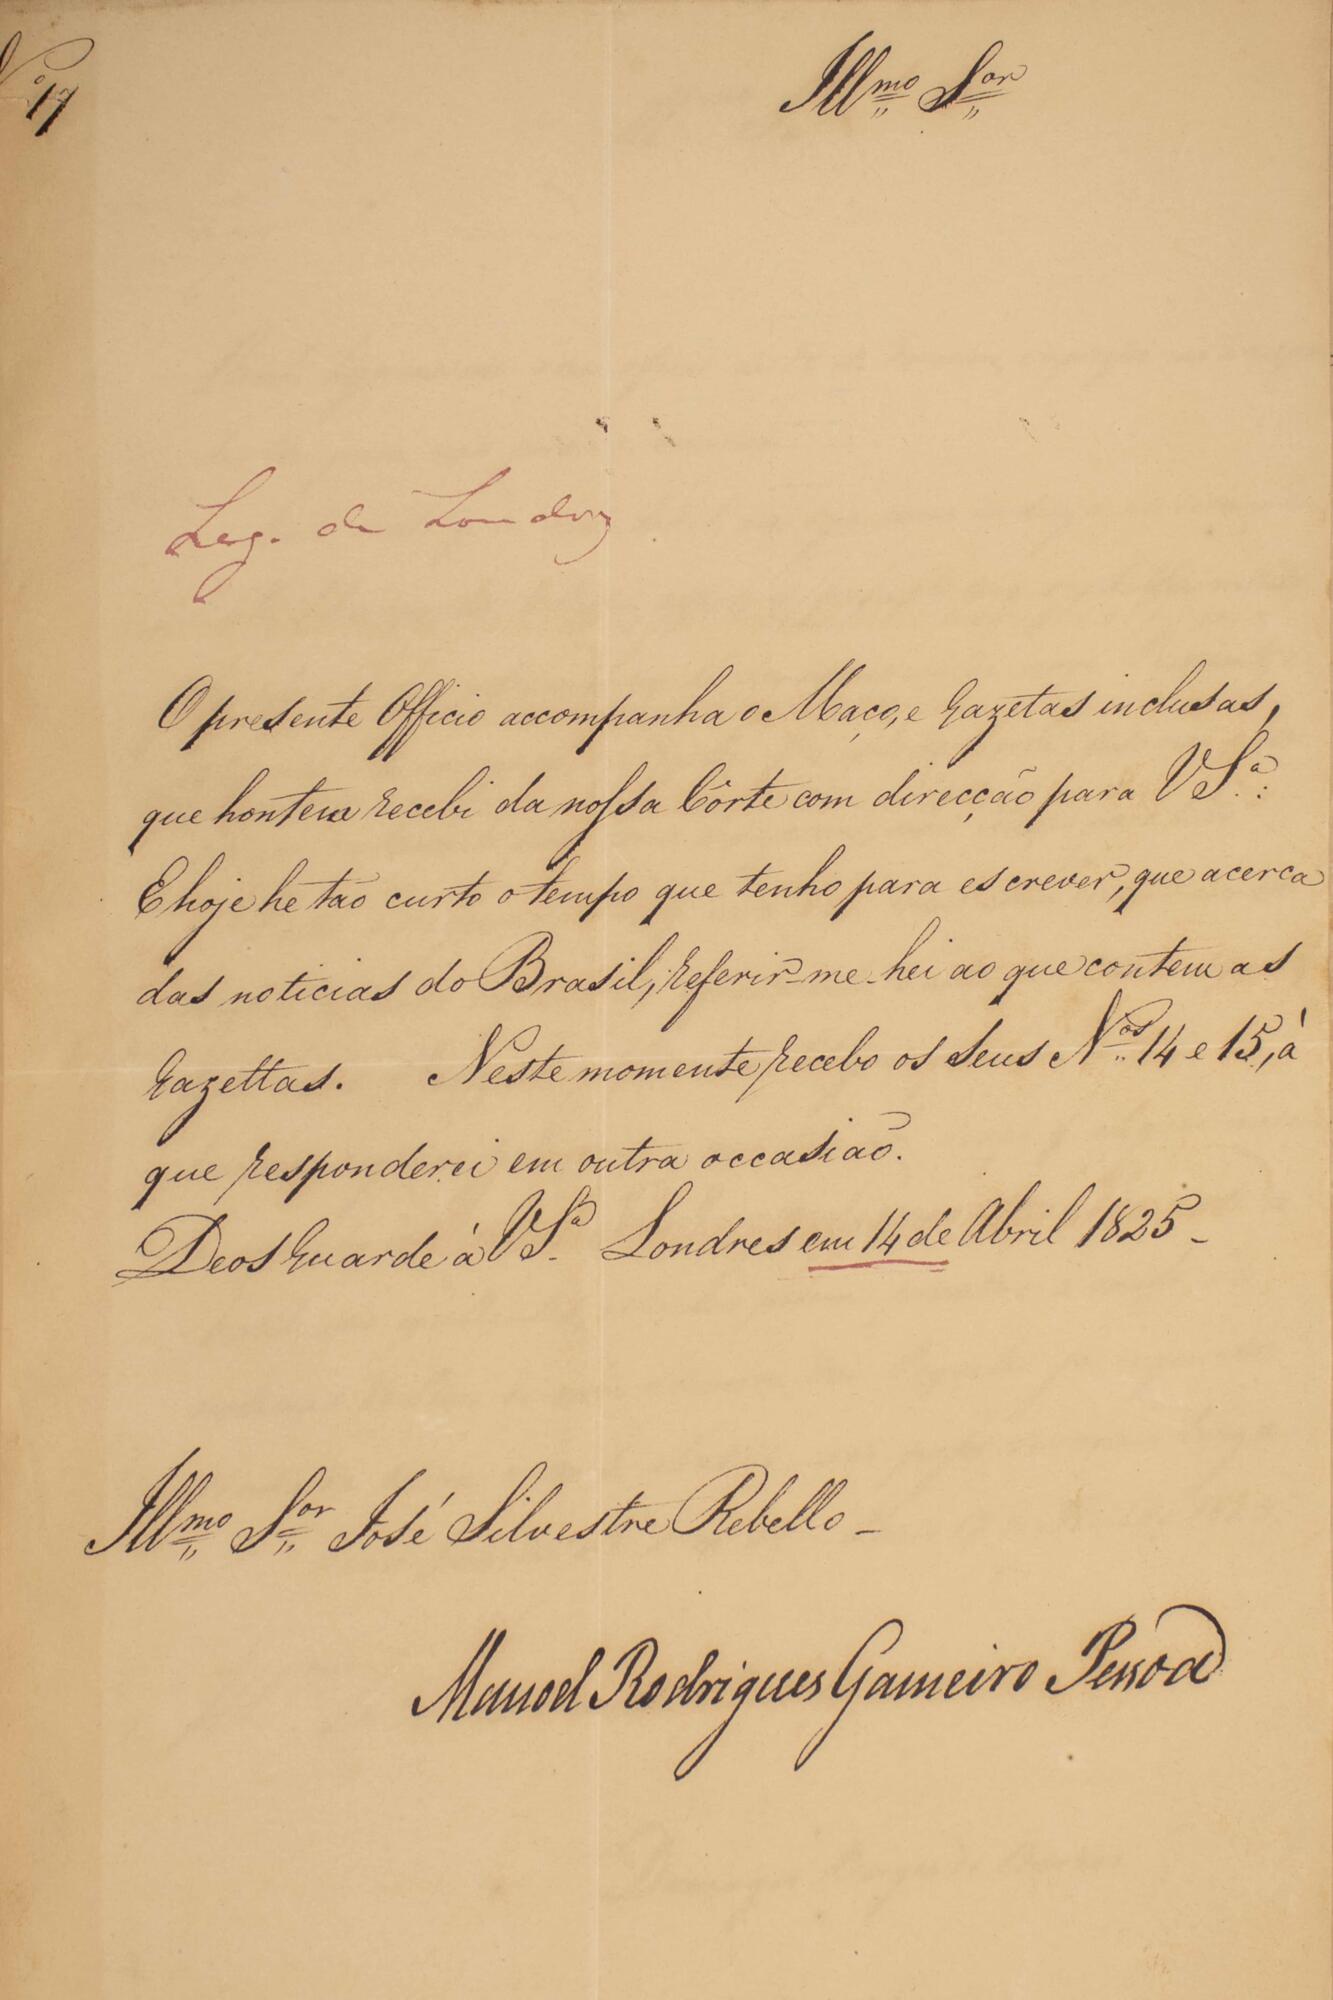 Nº 17
Illmo Sor
Leg. de Londres
O presente Officio accompanha o Maço, e Gazetas inclusas,
que hontem recebi da nossa Côrte com direcção para VSª:
E hoje he tão curto o tempo que tenho para escrever, que acerca
das noticias do Brasil, referir-me-hei ao que contem as
Gazettas. Neste momente recebo os seus Nos 14 e 15, á
que responderei em outra occasião.
Deos Guarde á VSª Londres em 14 de Abril 1825 -
Illmo Sor José Silvestre Rebello -
Manoel Rodrigues Gameiro Pessoa